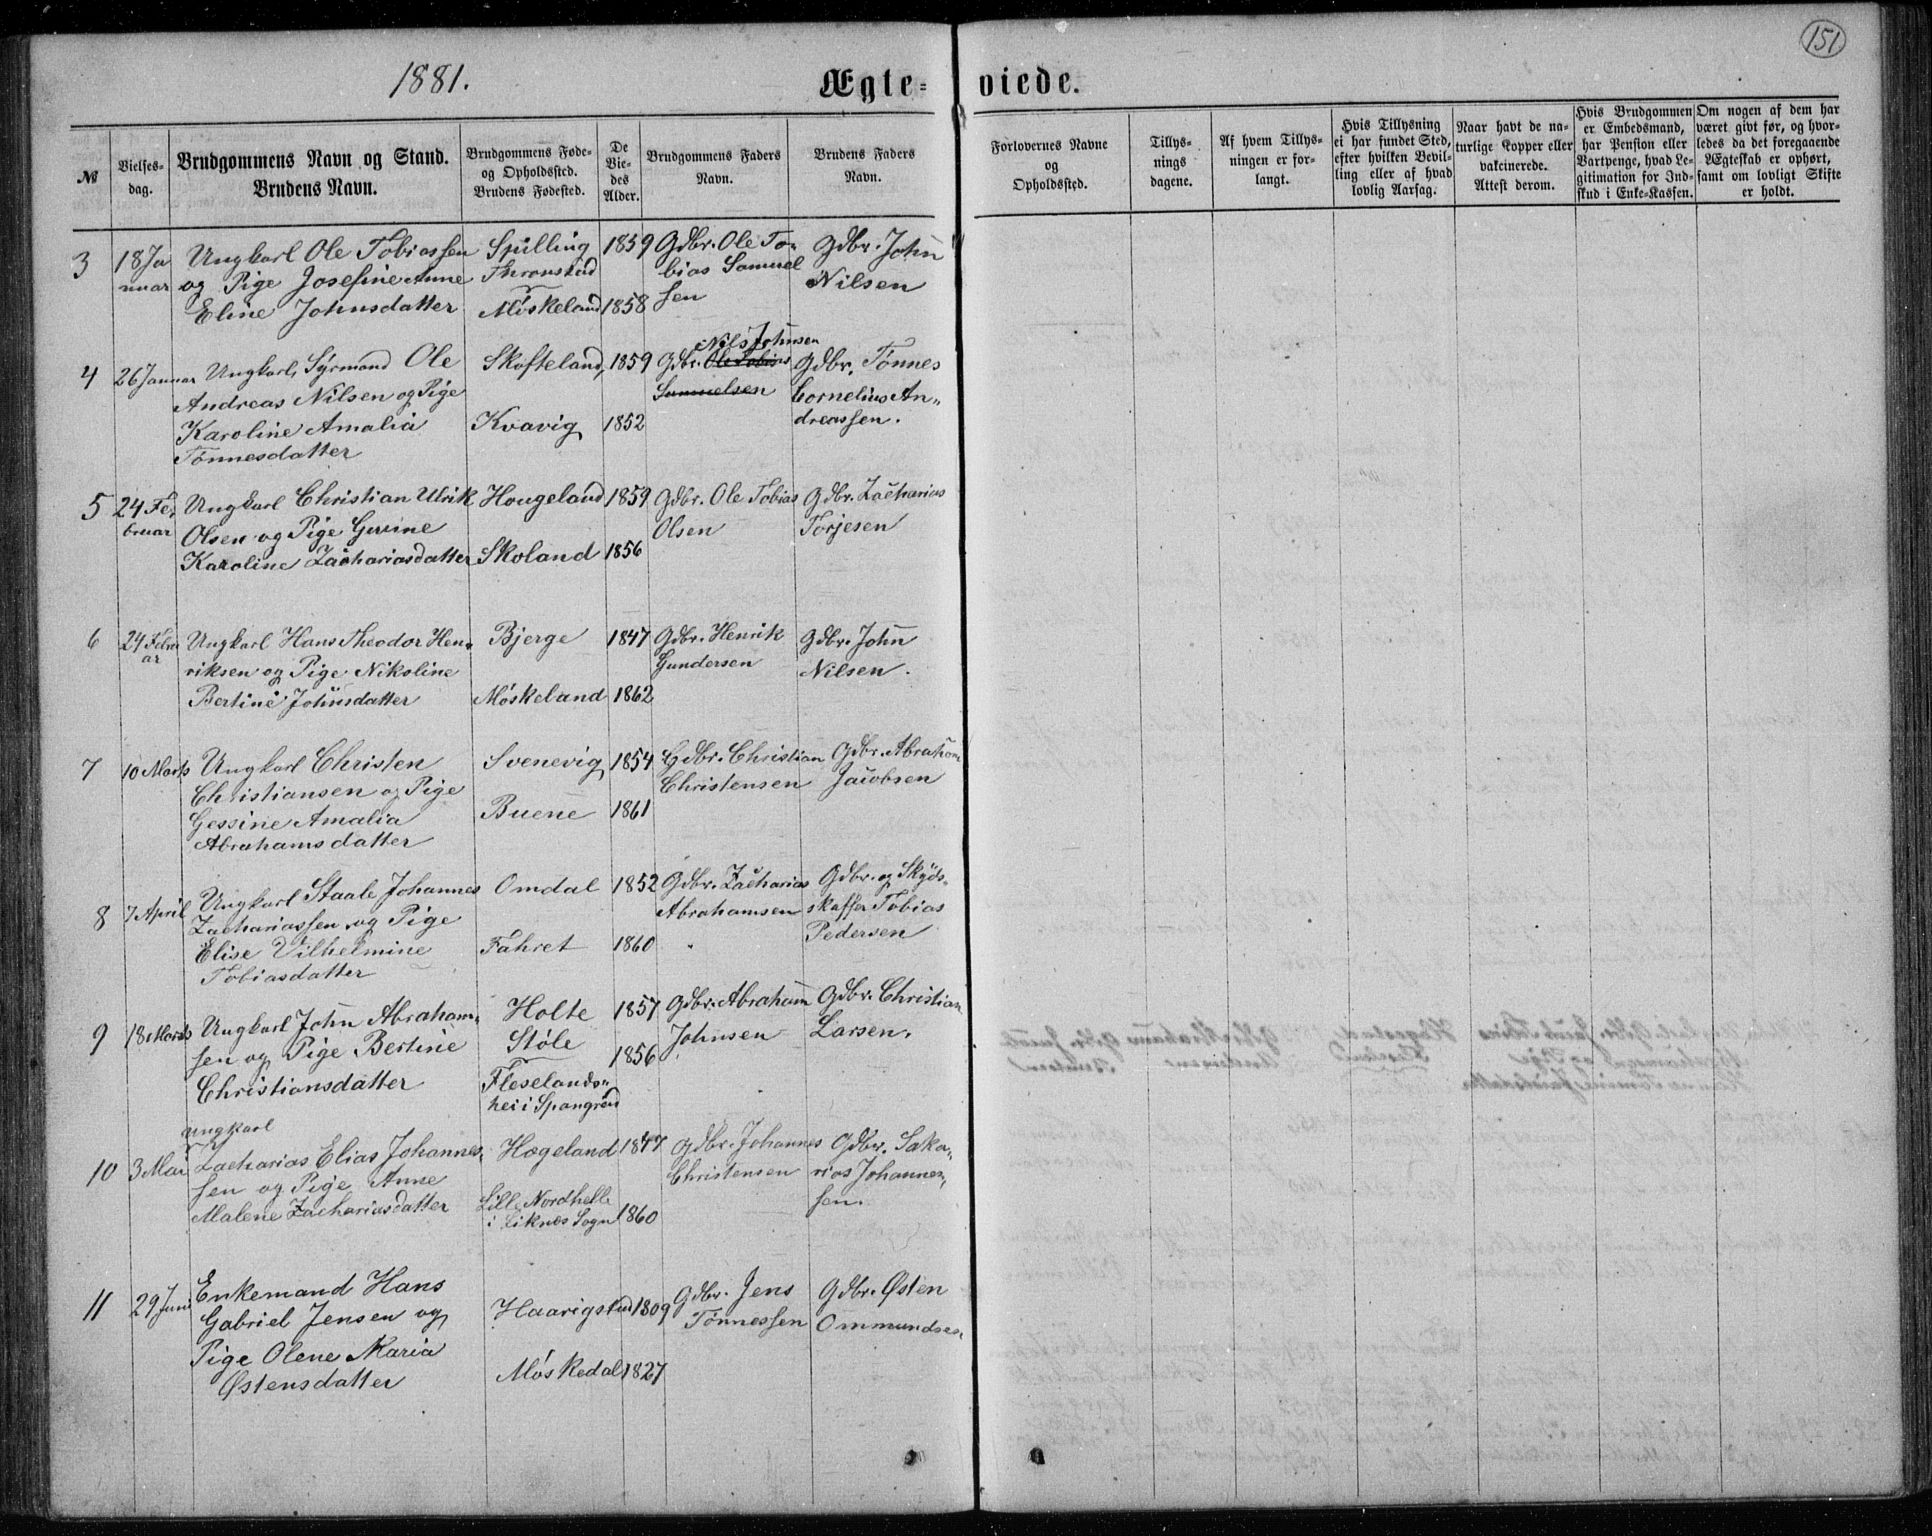 151
1881.
Ægte-
viede.
№
Vielses-
dag.
Brudgommens Navn og Stand.
Brudens Navn.
Brudgommens Føde-
og Opholdssted.
Brudens Fødested.
De
Vie-
des
Alder.
Brudgommens Faders
Navn.
Brudens Faders
Navn.
Forlovernes Navne
og
Opholdssted.
Tillys-
nings
dagene.
Af hvem Tillys-
ningen er for-
langt.
Hvis Tillysning
ei har fundet Sted,
efter hvilken Bevil-
ling eller af hvad
lovlig Aarsag.
Naar havt de na-
turlige Kopper eller
vakcinerede.
Attest derom.
Hvis Brudgommen
er Embedsmand,
har Pension eller
Vartpenge, hvad Le-
gitimation for Ind-
skud i Enke-Kassen.
Om nogen af dem har
været givt før, og hvor-
ledes da det foregaaende
Ægteskab er ophørt,
samt om lovligt Skifte
er holdt.
3
18 Ja
nuar
Ungkarl Ole Tobiassen
og Pige Josefine Anne
Eline Johnsdatter
Spilling
Thronstad
Møskeland
1859
1858
Gdbr. Ole To-
bias Samuel
sen
Gdbr. John
Nilsen
4
26 Januar
Ungkarl, Sømand Ole
Andreas Nilsen og Pige
Karoline Amalia
Tønnesdatter
Skofteland,
Kvavig
1859
1852
Nils Johnsen
Gdbr. Ole Tobias
Samuelsen
Gdbr. Tønnes
Cornelius An-
dreassen.
5
24 Fe-
bruar
Ungkarl Christian Ulrik
Olsen og Pige Gurine
Karoline Zachariasdatter
Hougeland
Skoland
1859
1856
Gdbr. Ole Tobias
Olsen
Gdbr. Zacharias
Torjesen
6
24 Febru
ar
Ungkarl Hans Theodor Hen-
riksen og Pige Nikoline
Bertine Johnsdatter
Bjerge
Møskeland
1847
1862
Gdbr. Henrik
Gundersen
Gdbr. John
Nilsen.
7
10 Marts
Ungkarl Christen
Christiansen og Pige
Gessine Amalia
Abrahamsdatter
Svenevig
Buene
1854
1861
Gdbr. Christian
Christensen
Gdbr. Abraham
Jacobsen
8
7 April
Ungkarl Staale Johannes
Zachariassen og Pige
Elise Vilhelmine
Tobiasdatter
Omdal
Fahret
1852
1860
Gdbr. Zacharias
Abrahamsen
Gdbr. og Skyds-
skaffer Tobias
Pedersen
9
18 Marts
Ungkarl John Abraham-
sen og Pige Bertine
Christiansdatter
Holte
Støle
Fleselands-
hei i Spangreid
1857
1856
Gdbr. Abraham
Johnsen
Gdbr. Christian
Larsen.
10
3 Mai
Ungkarl
Zacharias Elias Johannes-
sen og Pige Anne
Malene Zachariasdatter
Hægeland
Lille Nordhelle
i Liknes Sogn
1847
1860
Gdbr. Johannes
Christensen
Gdbr. Saka-
rias Johannes-
sen.
11
29 Juni
Enkemand Hans
Gabriel Jensen og
Pige Olene Maria
Østensdatter
Haarigstad
Møskedal
1809
1827
Gdbr. Jens
Tønnessen
Gdbr. Østen
Ommundsen